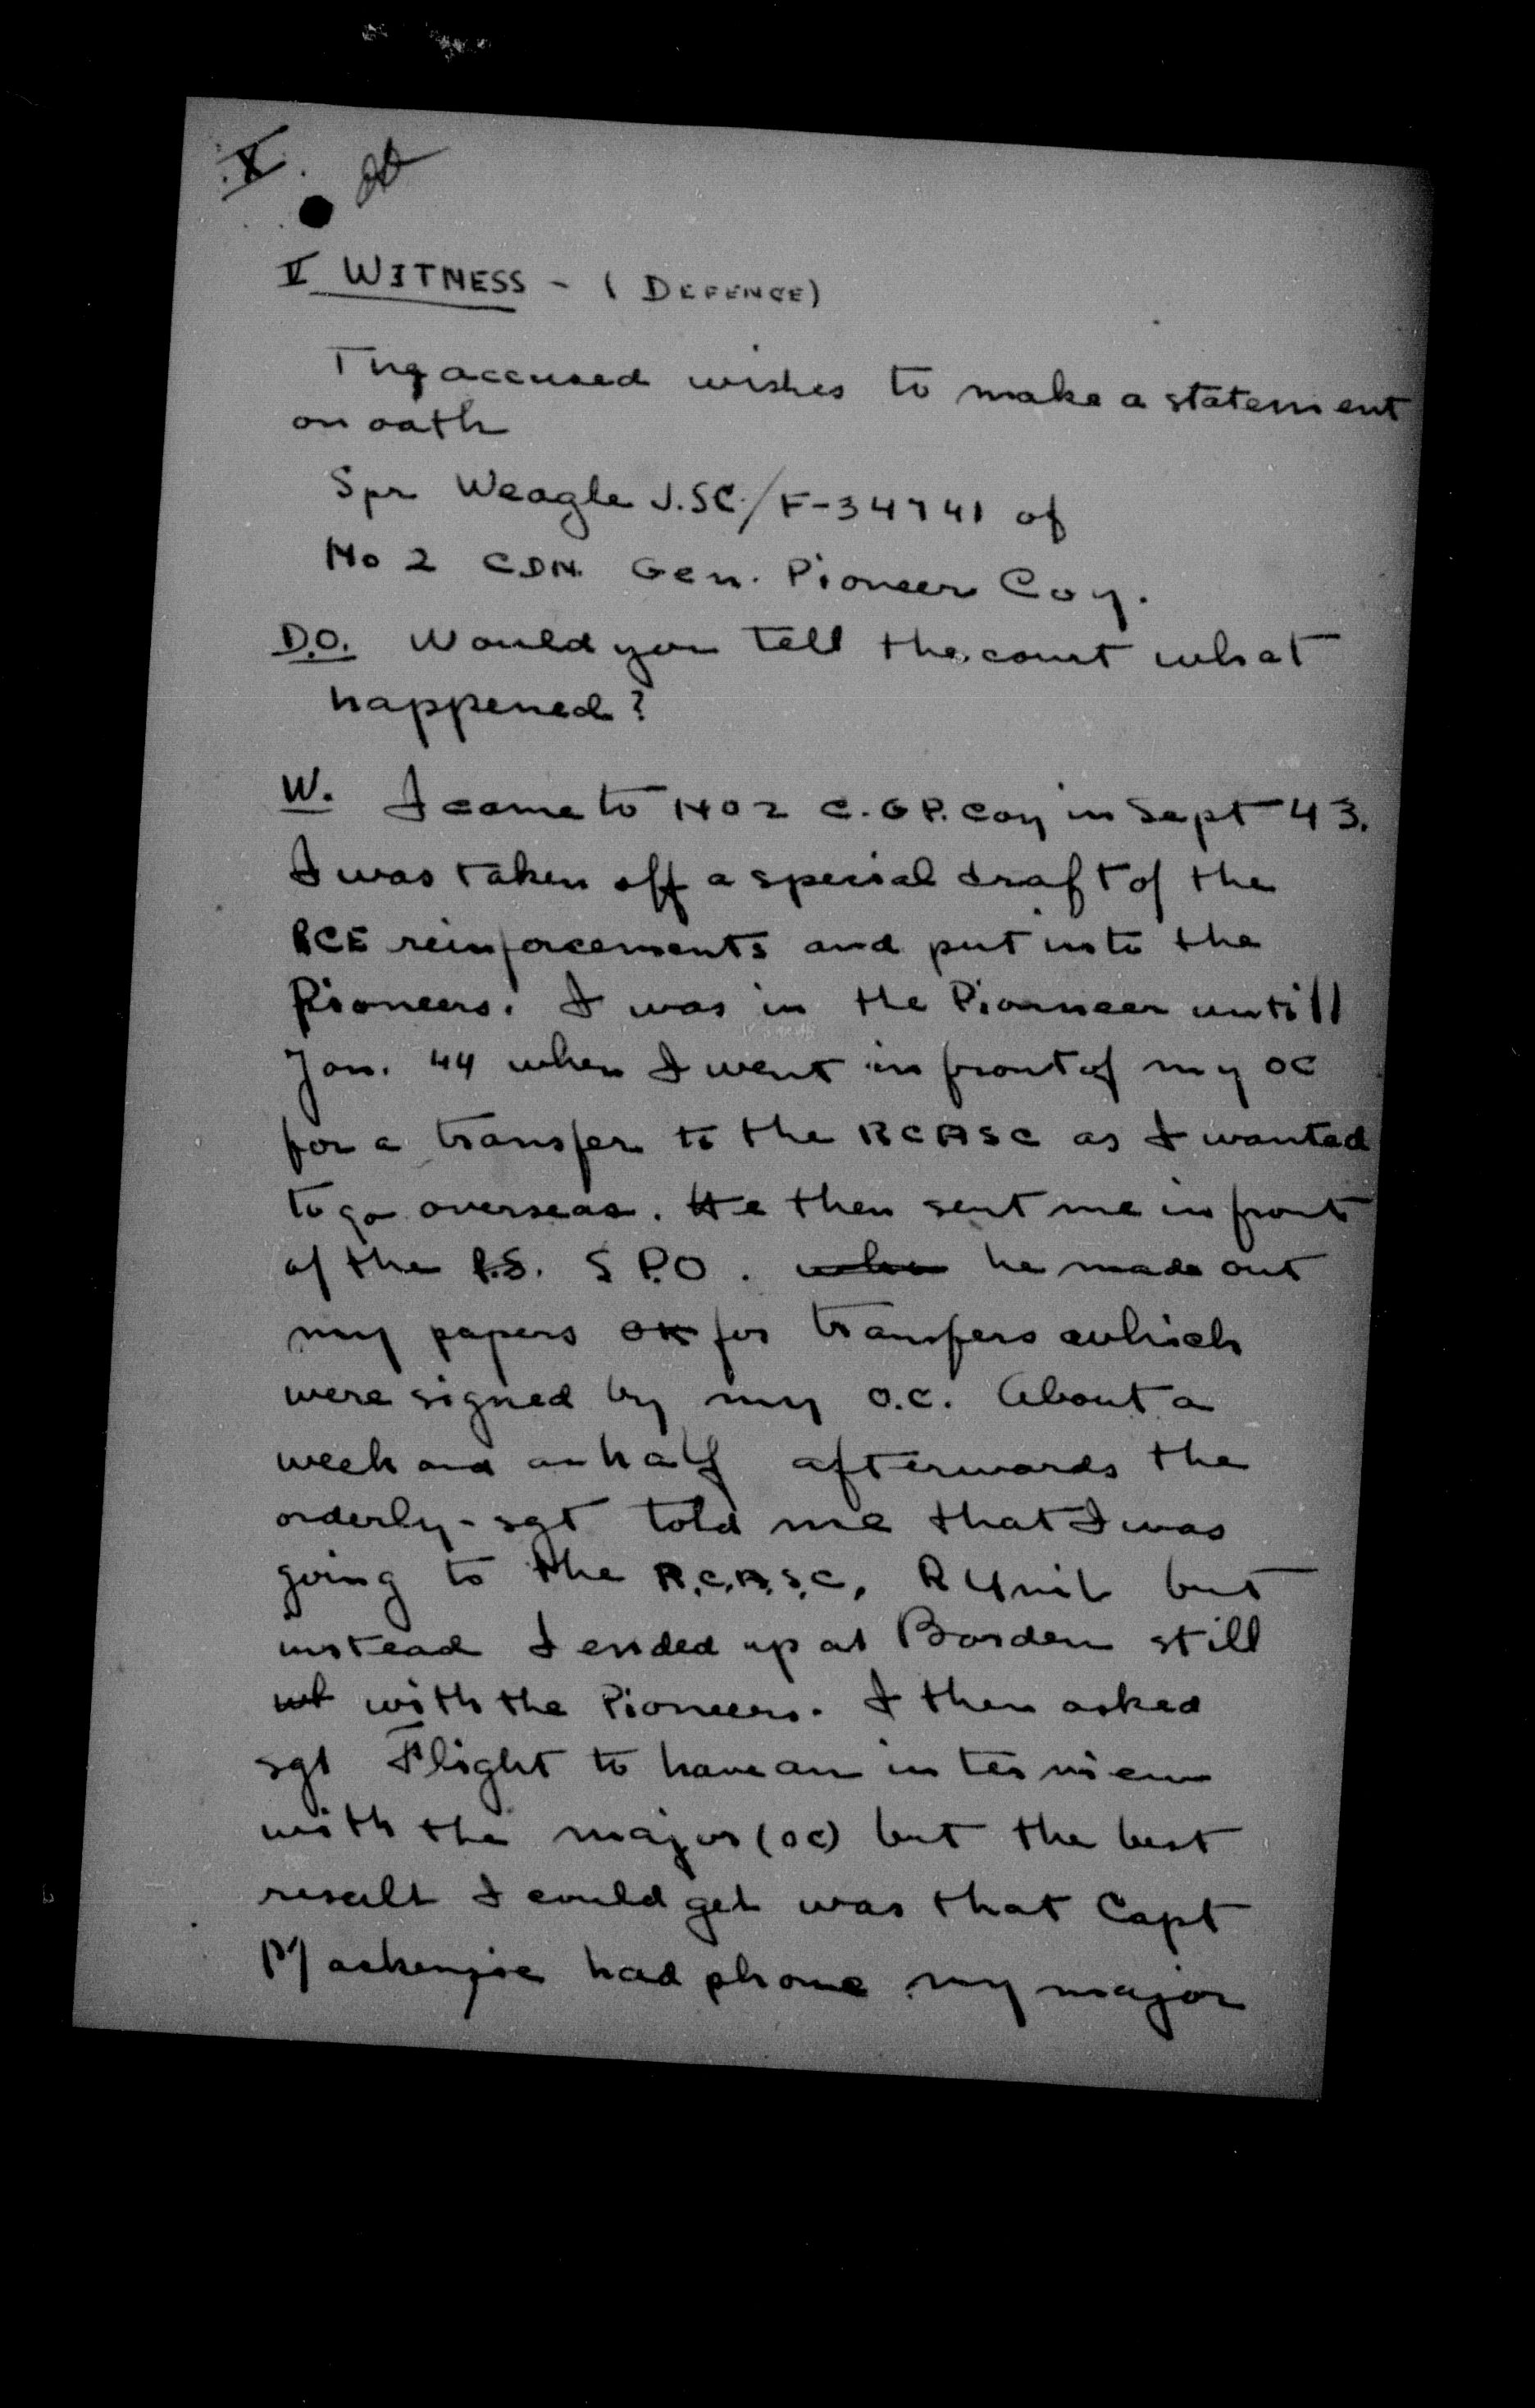 X
II WITNESS - (DEFENCE)
The accused wishes to make a statement
on oath
Spr Weagle J.SC./F-34741 of
No 2 CDN. Gen. Pioneer Coy.
D.O. Would you tell the court what
happened?
W. I came to No 2 C.GP. Coy in Sept 43.
I was taken off a special draft of the
RCE reinforcements and put into the
Pioneers. I was in the Pionneer untill
Jan. 44 when I went in front of my OC
for a transfer to the RCASC as I wanted
to go overseas. He then sent me in front
of the P.S. S P.O. when he made out
my papers OK for transfers which
were signed by my O.C. About a
week and an half afterwards the
orderly-sgt told me that I was
going to the R.C.A.S.C. R Unit but
instead I ended up at Borden still
with the Pioneers. I then asked
sgt Flight to have an interview
with the major (OC) but the best
result I could get was that Capt
Mackenzie had phone my major